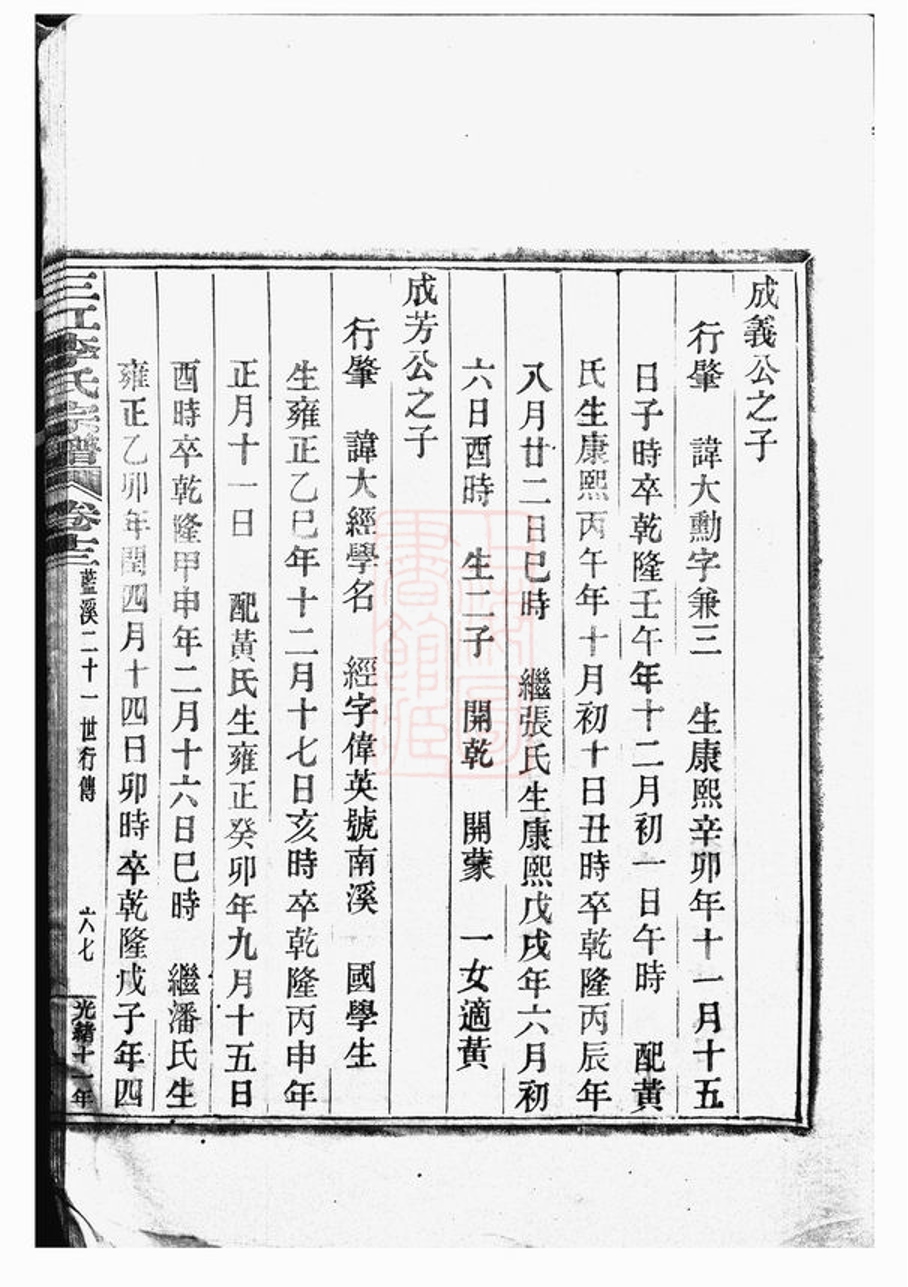 成義公之子
行肇 諱大勳字兼三 生康熙辛卯年十一月十五
日子時卒乾隆壬午年十二月初一日午時 配黃
氏生康熙丙午年十月初十日丑時卒乾隆丙辰年
八月廿二日巳時 繼張氏生康熙戊戌年六月初
六日酉時 生二子 開乾 開蒙 一女適黃
成芳公之子
行肇 諱大經學名 經字偉英號南溪 國學生
生雍正乙巳年十二月十七日亥時卒乾隆丙申年
正月十一日 配黃氏生雍正癸卯年九月十五日
酉時卒乾隆甲申年二月十六日巳時 繼潘氏生
雍正乙卯年閏四月十四日卯時卒乾隆戊子年四
三江李氏宗譜 卷十三 藍溪二十一世行傳 六七 光緒十一年